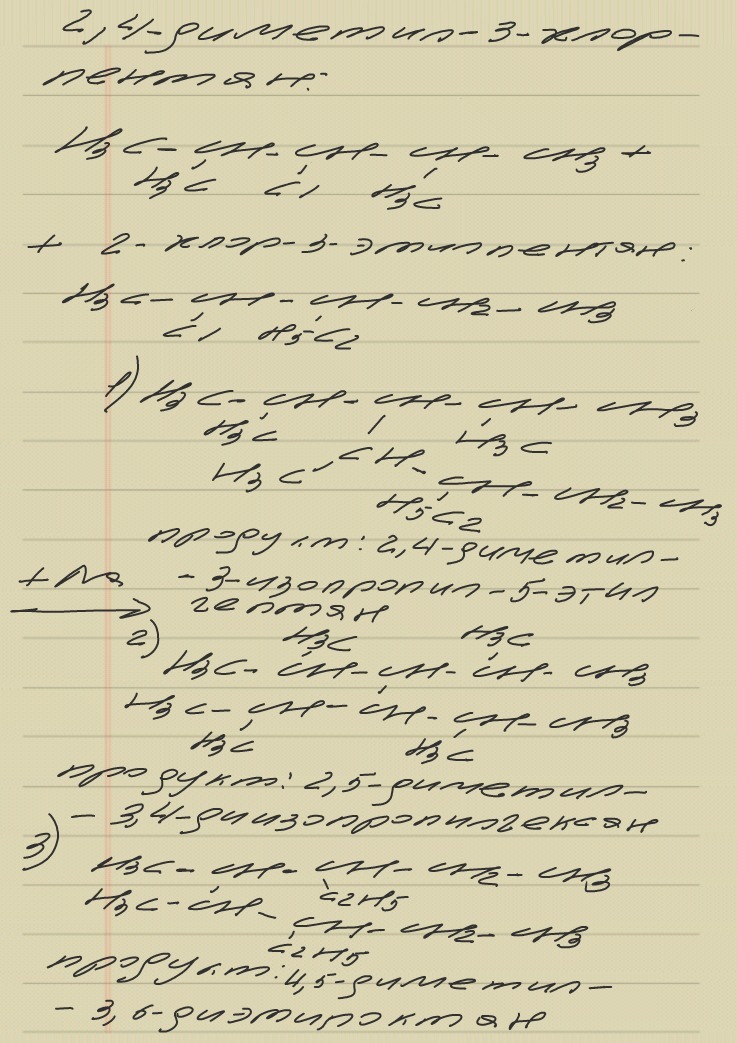 2,4-диметил-3-хлор-
пентан:
H3C-CH-CH-CH-CH3 +
H3C Cl H3C
+ 2-хлор-3-этилпентан:
H3C-CH-CH-CH2-CH3
Cl H5C2
1) H3C-CH-CH-CH-CH3
H3C H3C
H3C CH
CH-CH2-CH3
H5C2
продукт: 2,4-диметил-
+ Na -3-изопропил-5-этил
гептан
2) H3C H3C
H3C-CH-CH-CH-CH3
H3C-CH-CH-CH-CH3
H3C H3C
продукт: 2,5-диметил-
-3,4-диизопропилгексан
3) H3C-CH-CH-CH2-CH3
H3C-CH C2H5
CH-CH2-CH3
C2H5
продукт: 4,5-диметил-
-3,6-диэтилоктан